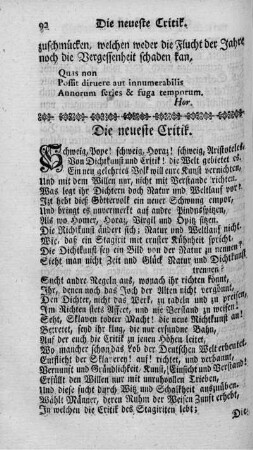 92 Die neueste Critik.
zuschmücken, welchen weder die Flucht der Jahre
noch die Vergessenheit schaden kan,
Quis non
Possit diruere aut innumerabilis
Annorum series & fuga temporum.
Hor.
Die neueste Critik.
Schweig, Pope! schweig, Horaz! schweig, Aristoteles
Von Dichtkunst und Critik! die Welt gebietet es.
Ein neu gelehrtes Volk will eure Kunst vernichten,
Und mit dem Willen nur, nicht mit Verstande richten.
Was legt ihr Dichtern doch Natur und Weltlauf vor?
Izt hebt dieß Göttervolk ein neuer Schwung empor,
Und bringt es unvermerkt auf andre Pindusspitzen,
Als wo Homer, Horaz, Virgil und Opitz sitzen.
Die Richtkunst ändert sich; Natur und Weltlauf nicht.
Wie, daß ein Stagirit mit ernster Kühnheit spricht:
Die Dichtkunst sey ein Bild von der Natur zu nennen?
Sieht man nicht Zeit und Glück Natur und Dichtkunst
trennen?
Sucht andre Regeln aus, wornach ihr richten könnt,
Ihr, denen noch das Joch der Alten nicht vergönnt,
Den Dichter, nicht das Werk, zu tadeln und zu preisen,
Im Richten stets Affect, und nie Verstand zu weisen!
Seht, Sklaven todter Macht! die neue Richtkunst an!
Betretet, seyd ihr klug, die nur erfundne Bahn,
Auf der euch die Critik zu jenen Höhen leitet,
Wo mancher schon das Lob der Deutschen Welt erbeutet.
Entflieht der Sklaverey! auf! richtet, und verbannt,
Vernunft und Gründlichkeit, Kunst, Einsicht und Verstand!
Erfüllt den Willen nur mit unruhvollen Trieben,
Und diese sucht durch Witz und Schalkheit auszuüben.
Wählt Männer, deren Ruhm der Weisen Zunft erhebt,
In welchen die Critik des Stagiriten lebt;
Die